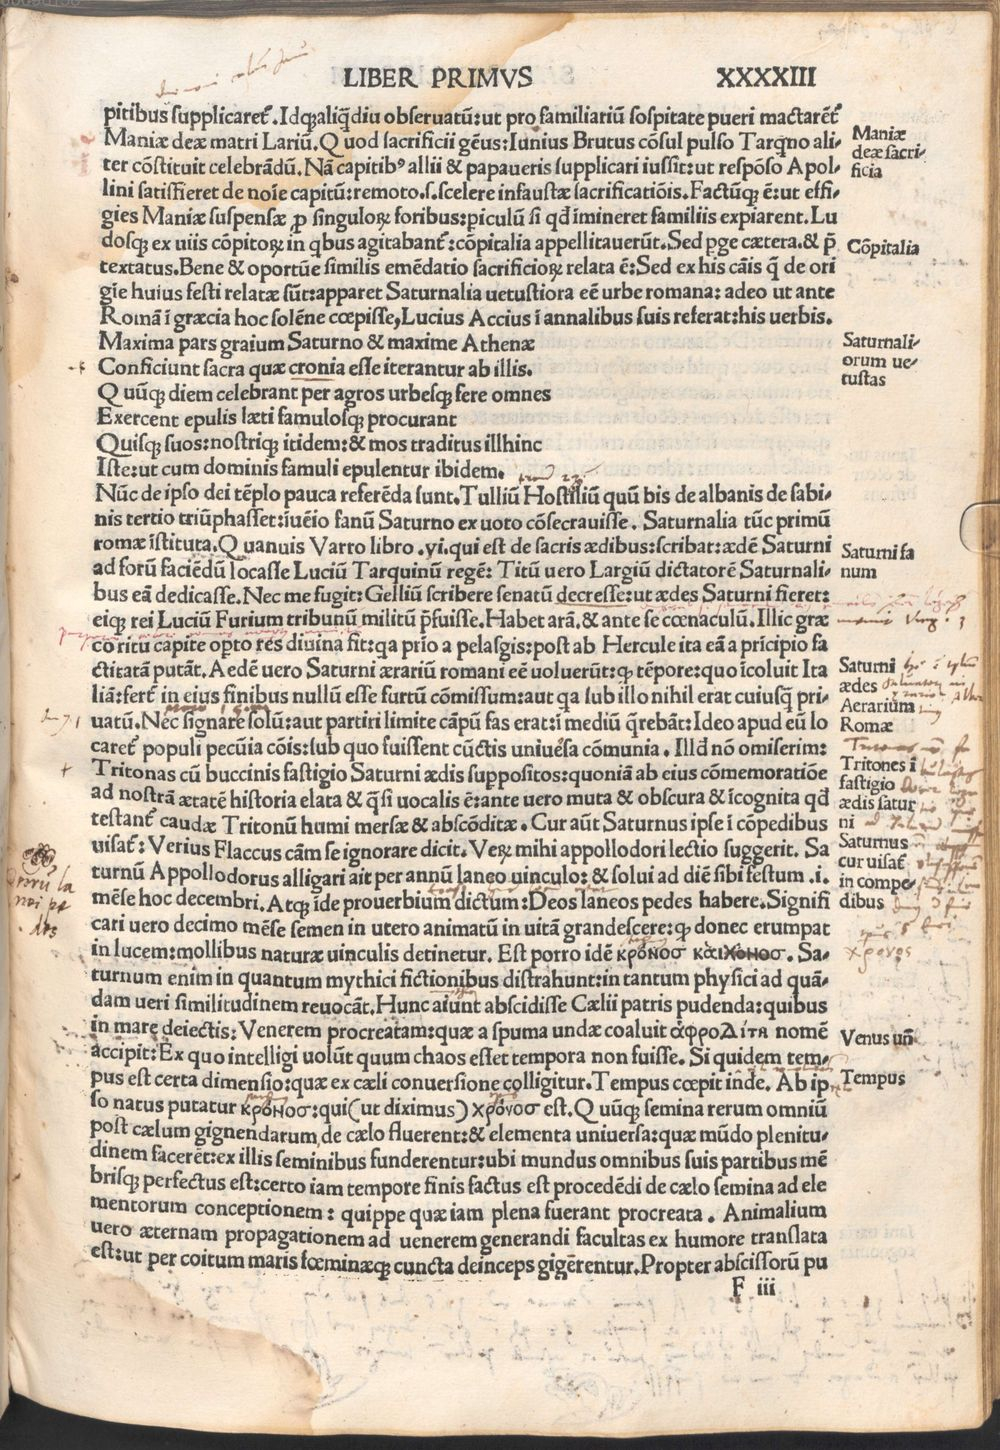 LIBER PRIMVS XXXXIII
pitibus supplicareť. Idqꝫ aliq̃diu obseruatũ: ut pro familiariũ sospitate pueri mactarẽť
Maniæ deæ matri Lariũ. Quod sacrificii gẽus: Iunius Brutus cõsul pulso Tarqno ali-
ter cõstituit celebrãdũ. Nã capitibꝰ allii & papaueris supplicari iussit: ut respõso Apol-
lini satisfieret de noĩe capitũ: remoto .s. scelere infaustæ sacrificatiõis. Factũqꝫ ẽ: ut effi-
gies Maniæ suspensæ ꝓ singuloꝝ foribus: piculũ si qđ imineret familiis expiarent. Lu
dosqꝫ ex uiis cõpitoꝝ in qbus agitabanť: cõpitalia appellitauerũt. Sed pge cætera. & p̃
textatus. Bene & oportũe similis emẽdatio sacrificioꝝ relata ẽ: Sed ex his cãis q̃ de ori
gĩe huius festi relatæ sũt: apparet Saturnalia uetustiora eẽ urbe romana: adeo ut ante
Romã ĩ græcia hoc solẽne cœpisse, Lucius Accius ĩ annalibus suis referat: his uerbis.
Maxima pars graium Saturno & maxime Athenæ
Conficiunt sacra quæ cronia esse iterantur ab illis.
Quũqꝫ diem celebrant per agros urbesqꝫ fere omnes
Exercent epulis læti famulosqꝫ procurant
Quisqꝫ suos: nostriqꝫ itidem: & mos traditus illhinc
Iste: ut cum dominis famuli epulentur ibidem.
Nũc de ipso dei tẽplo pauca referẽda sunt. Tulliũ Hostiliũ quũ bis de albanis de sabi-
nis tertio triũphasset: ĩuẽio fanũ Saturno ex uoto cõsecrauisse. Saturnalia tũc primũ
romæ ĩstituta. Quanuis Varro libro .vi. qui est de sacris ædibus: scribat: ædẽ Saturni
ad forũ faciẽdũ locasse Luciũ Tarquinũ regẽ: Titũ uero Largiũ dictatorẽ Saturnali-
bus eã dedicasse. Nec me fugit: Gelliũ scribere senatũ decresse: ut ædes Saturni fieret:
eiqꝫ rei Luciũ Furium tribunũ militũ p̃fuisse. Habet arã, & ante se cœnaculũ. Illic græ
co ritu capite opto res diuina fit: qa prio a pelasgis: post ab Hercule ita eã a prĩcipio fa
ctitatã putãt. Aedẽ uero Saturni ærariũ romani eẽ uoluerũt: qꝫ tẽpore: quo ĩcoluit Ita
liã: ferť in eius finibus nullũ esse furtũ cõmissum: aut qa sub illo nihil erat cuiusqꝫ pri-
uatũ. Nec signare solũ: aut partiri limite cãpũ fas erat: ĩ mediũ q̃rebãt: Ideo apud eũ lo
careť populi pecũia cõis: sub quo fuissent cũctis uniuẽsa cõmunia. Illđ nõ omiserim:
Tritonas cũ buccinis fastigio Saturni ædis suppositos: quoniã ab eius cõmemoratiõe
ad nostrã ætatẽ historia elata & q̃si uocalis ẽ: ante uero muta & obscura & ĩcognita qđ
testanť caudæ Tritonũ humi mersæ & abscõditæ. Cur aũt Saturnus ipse ĩ cõpedibus
uisať: Verius Flaccus cãm se ignorare dicit. Veꝝ mihi appollodori lectio suggerit. Sa
turnũ Appollodorus alligari ait per annũ laneo uinculo: & solui ad diẽ sibi festum .i.
mẽse hoc decembri. Atqꝫ ĩde prouerbium dictum: Deos laneos pedes habere. Signifi
cari uero decimo mẽse semen in utero animatũ in uitã grandescere: qꝫ donec erumpat
in lucem: mollibus naturæ uinculis detinetur. Est porro idẽ κρόνοσ καὶ χόνοσ. Sa-
turnum enim in quantum mythici fictionibus distrahunt: in tantum physici ad quã-
dam ueri similitudinem reuocãt. Hunc aiunt abscidisse Cælii patris pudenda: quibus
in mare deiectis: Venerem procreatam: quæ a spuma undæ coaluit ἀφροΔίτη nomẽ
accipit: Ex quo intelligi uolũt quum chaos esset tempora non fuisse. Si quidem tem-
pus est certa dimensio: quæ ex cæli conuersione colligitur. Tempus cœpit inde. Ab ip
so natus putatur κρόνοσ: qui (ut diximus) χρόνοσ est. Quũqꝫ semina rerum omniũ
post cælum gignendarum, de cælo fluerent: & elementa uniuersa: quæ mũdo plenitu-
dinem facerẽt: ex illis seminibus funderentur: ubi mundus omnibus suis partibus mẽ
brisqꝫ perfectus est: certo iam tempore finis factus est procedẽdi de cælo semina ad ele
mentorum conceptionem: quippe quæ iam plena fuerant procreata. Animalium
uero æternam propagationem ad uenerem generandi facultas ex humore translata
est: ut per coitum maris fœminæqꝫ cuncta deinceps gigẽrentur. Propter abscissorũ pu
F iii
Maniæ
deæ sacri-
ficia
Cõpitalia
Saturnali-
orum ue-
tustas
Saturni fa
num
Saturni
ædes
Aerarium
Romæ
Tritones ĩ
fastigio
ædis satur
ni
Saturnus
cur uisať
in compe-
dibus
χρονος
Venus uñ
Tempus